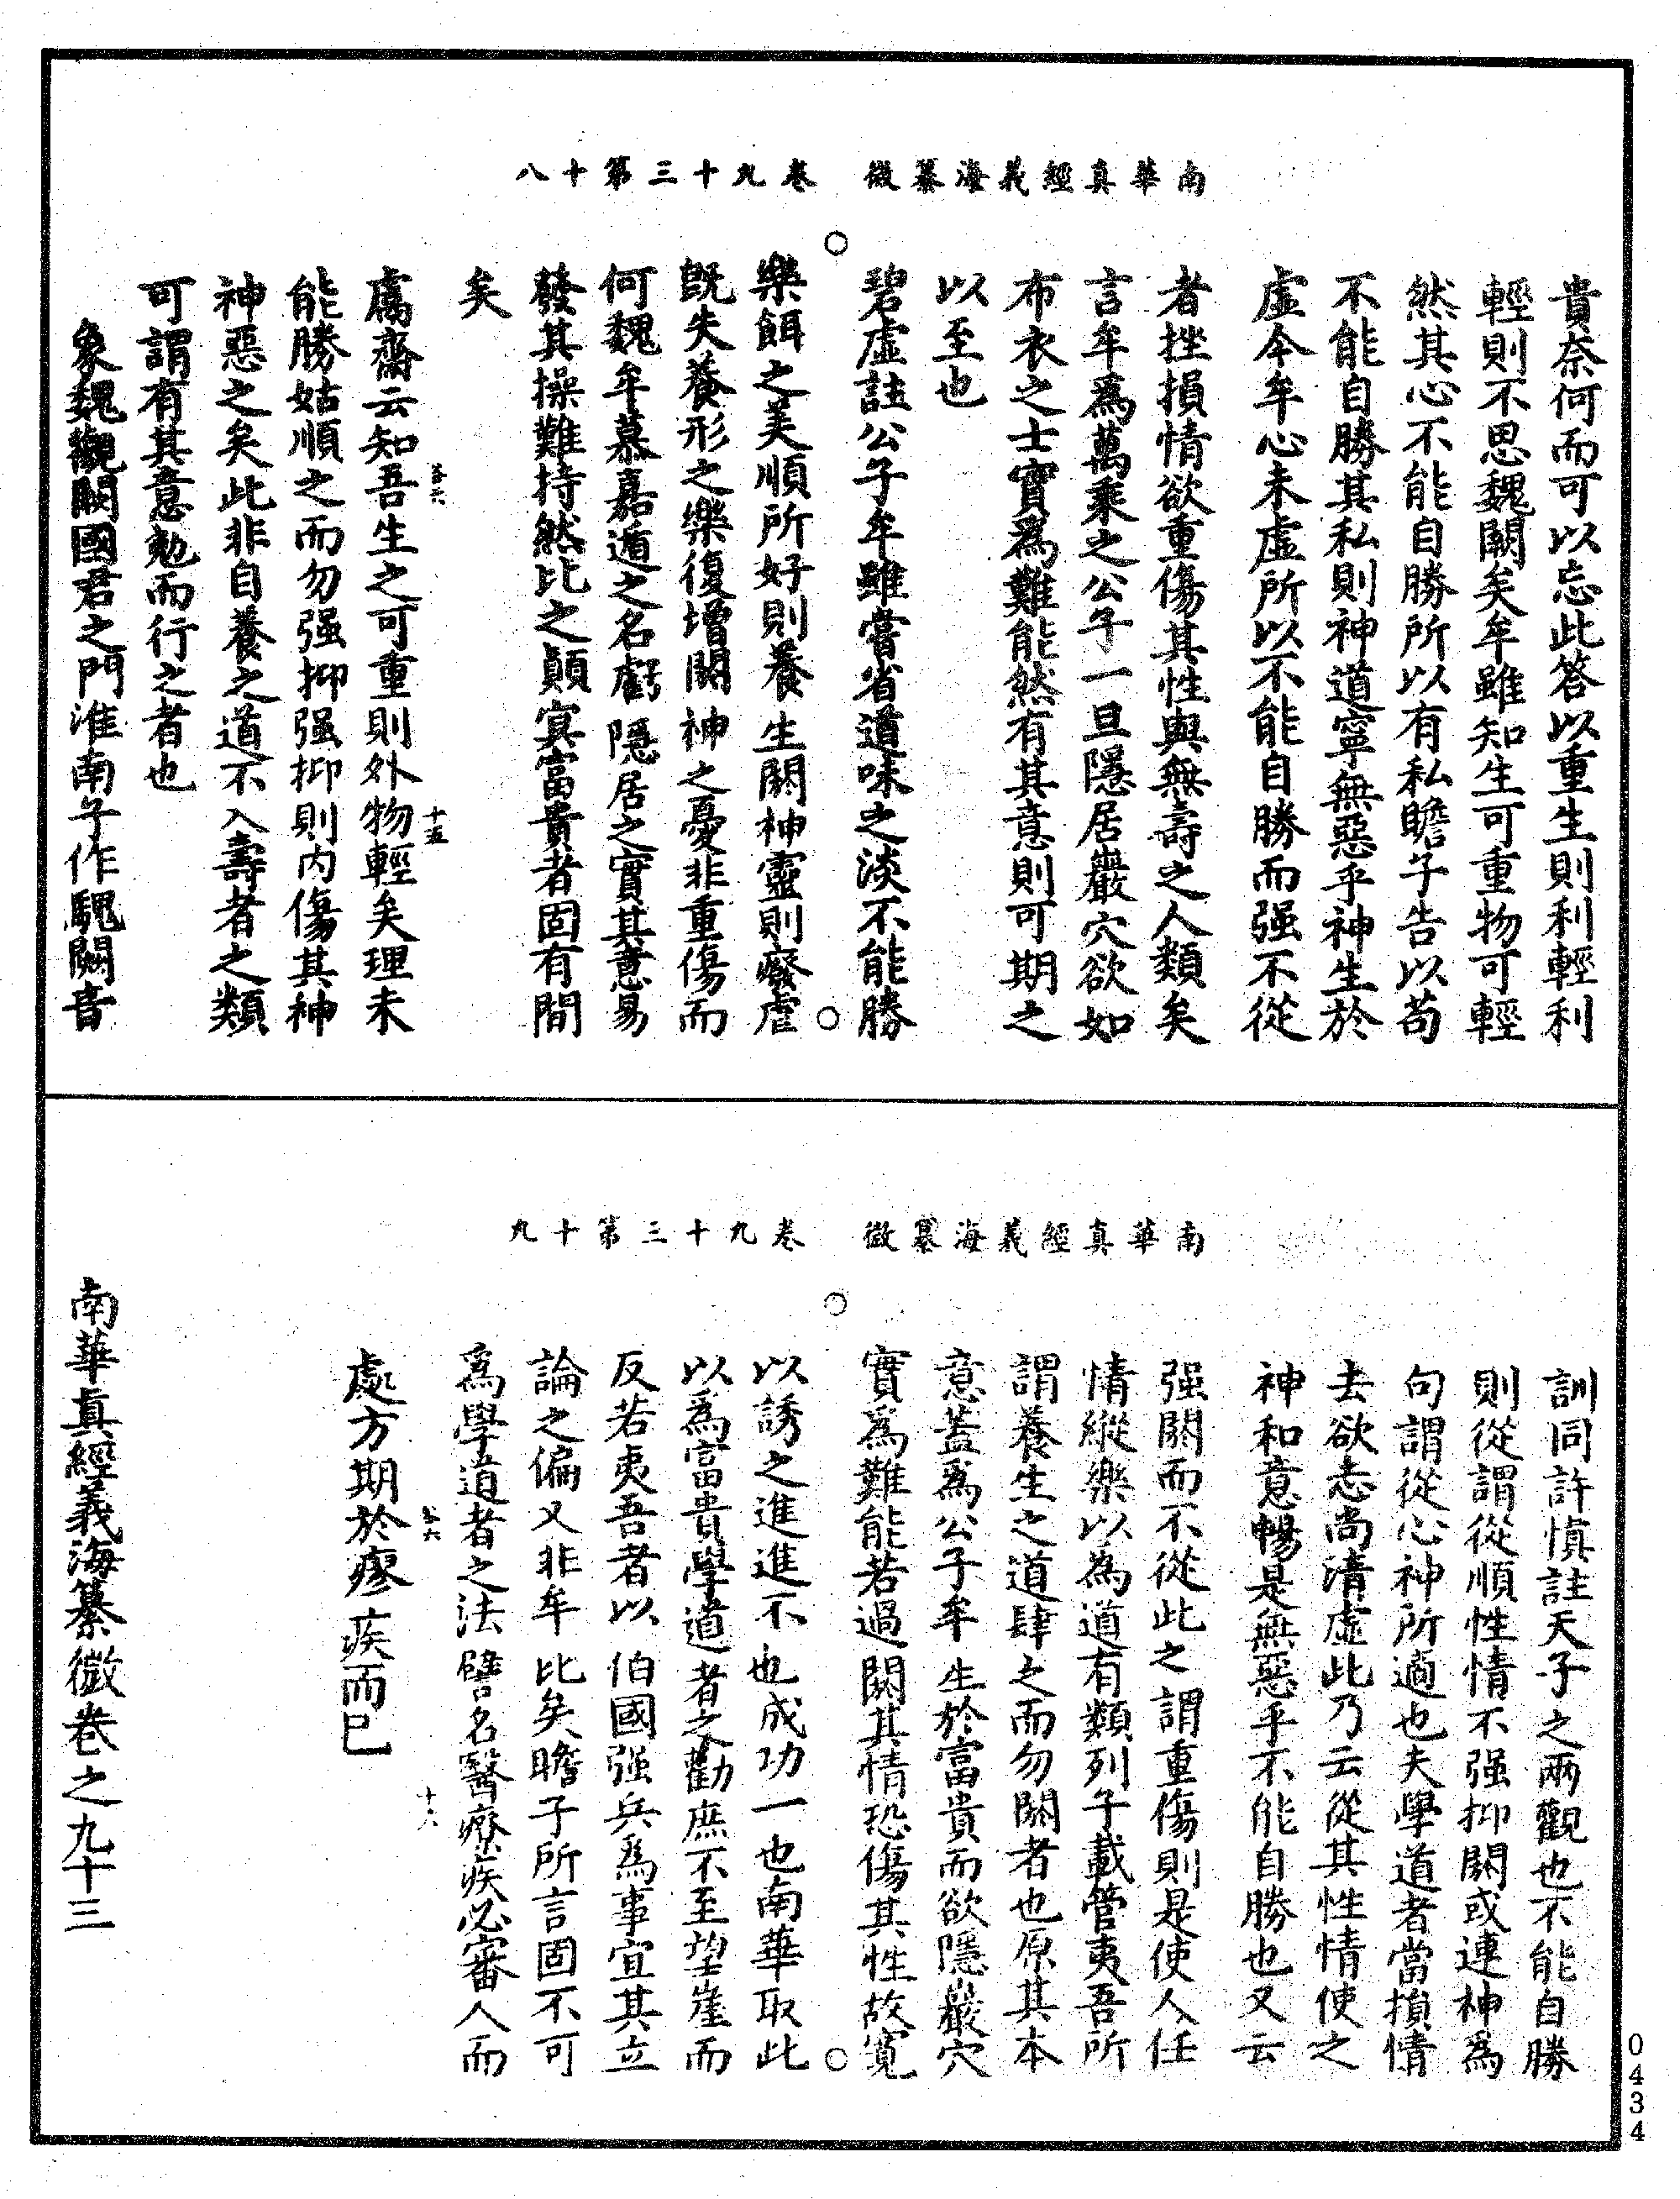 南華真經義海纂微　卷九十三第十八
貴奈何而可以忘此答以重生則利輕利
輕則不思魏闕矣牟雖知生可重物可輕
然其心不能自勝所以有私瞻子告以苟
不能自勝其私則神道寧無惡乎神生於
虛今牟心未虛所以不能自勝而强不從
者挫損情欲重傷其性與無壽之人類矣
言牟為萬乘之公子一旦隱居巖穴欲如
布衣之士實為難能然有其意則可期之
以至也
碧虛註公子牟雖嘗省道味之淡不能勝
樂餌之美順所好則養生閼神靈則癈虐
旣失養形之樂復增閼神之憂非重傷而
何魏牟慕嘉遁之名虧隱居之實其意易
發其操難持然比之顛冥富貴者固有間
矣
鬳齋云知吾生之可重則外物輕矣理未
能勝姑順之而勿强抑强抑則内傷其神
神惡之矣此非自養之道不入壽者之類
可謂有其意勉而行之者也
象魏觀闕國君之門淮南子作魏闕音
岳六
十五
南華真經義海纂微　卷九十三第十九
訓同許慎註天子之兩觀也不能自勝
則從謂從順性情不强抑閼或連神為
句謂從心神所適也夫學道者當損情
去欲志尚清虛此乃云從其性情使之
神和意暢是無惡乎不能自勝也又云
强閼而不從此之謂重傷則是使人任
情縱樂以為道有類列子載管夷吾所
謂養生之道肆之而勿閼者也原其本
意蓋為公子牟生於富貴而欲隱巖穴
實為難能若過閼其情恐傷其性故寬
以誘之進進不也成功一也南華取此
以為富貴學道者之勸庶不至望崖而
反若夷吾者以伯國强兵為事宜其立
論之偏又非牟比矣瞻子所言固不可
為學道者之法譬名醫療疾必審人而
處方期於瘳疾而已
十六
南華真經義海纂微卷之九十三
0434